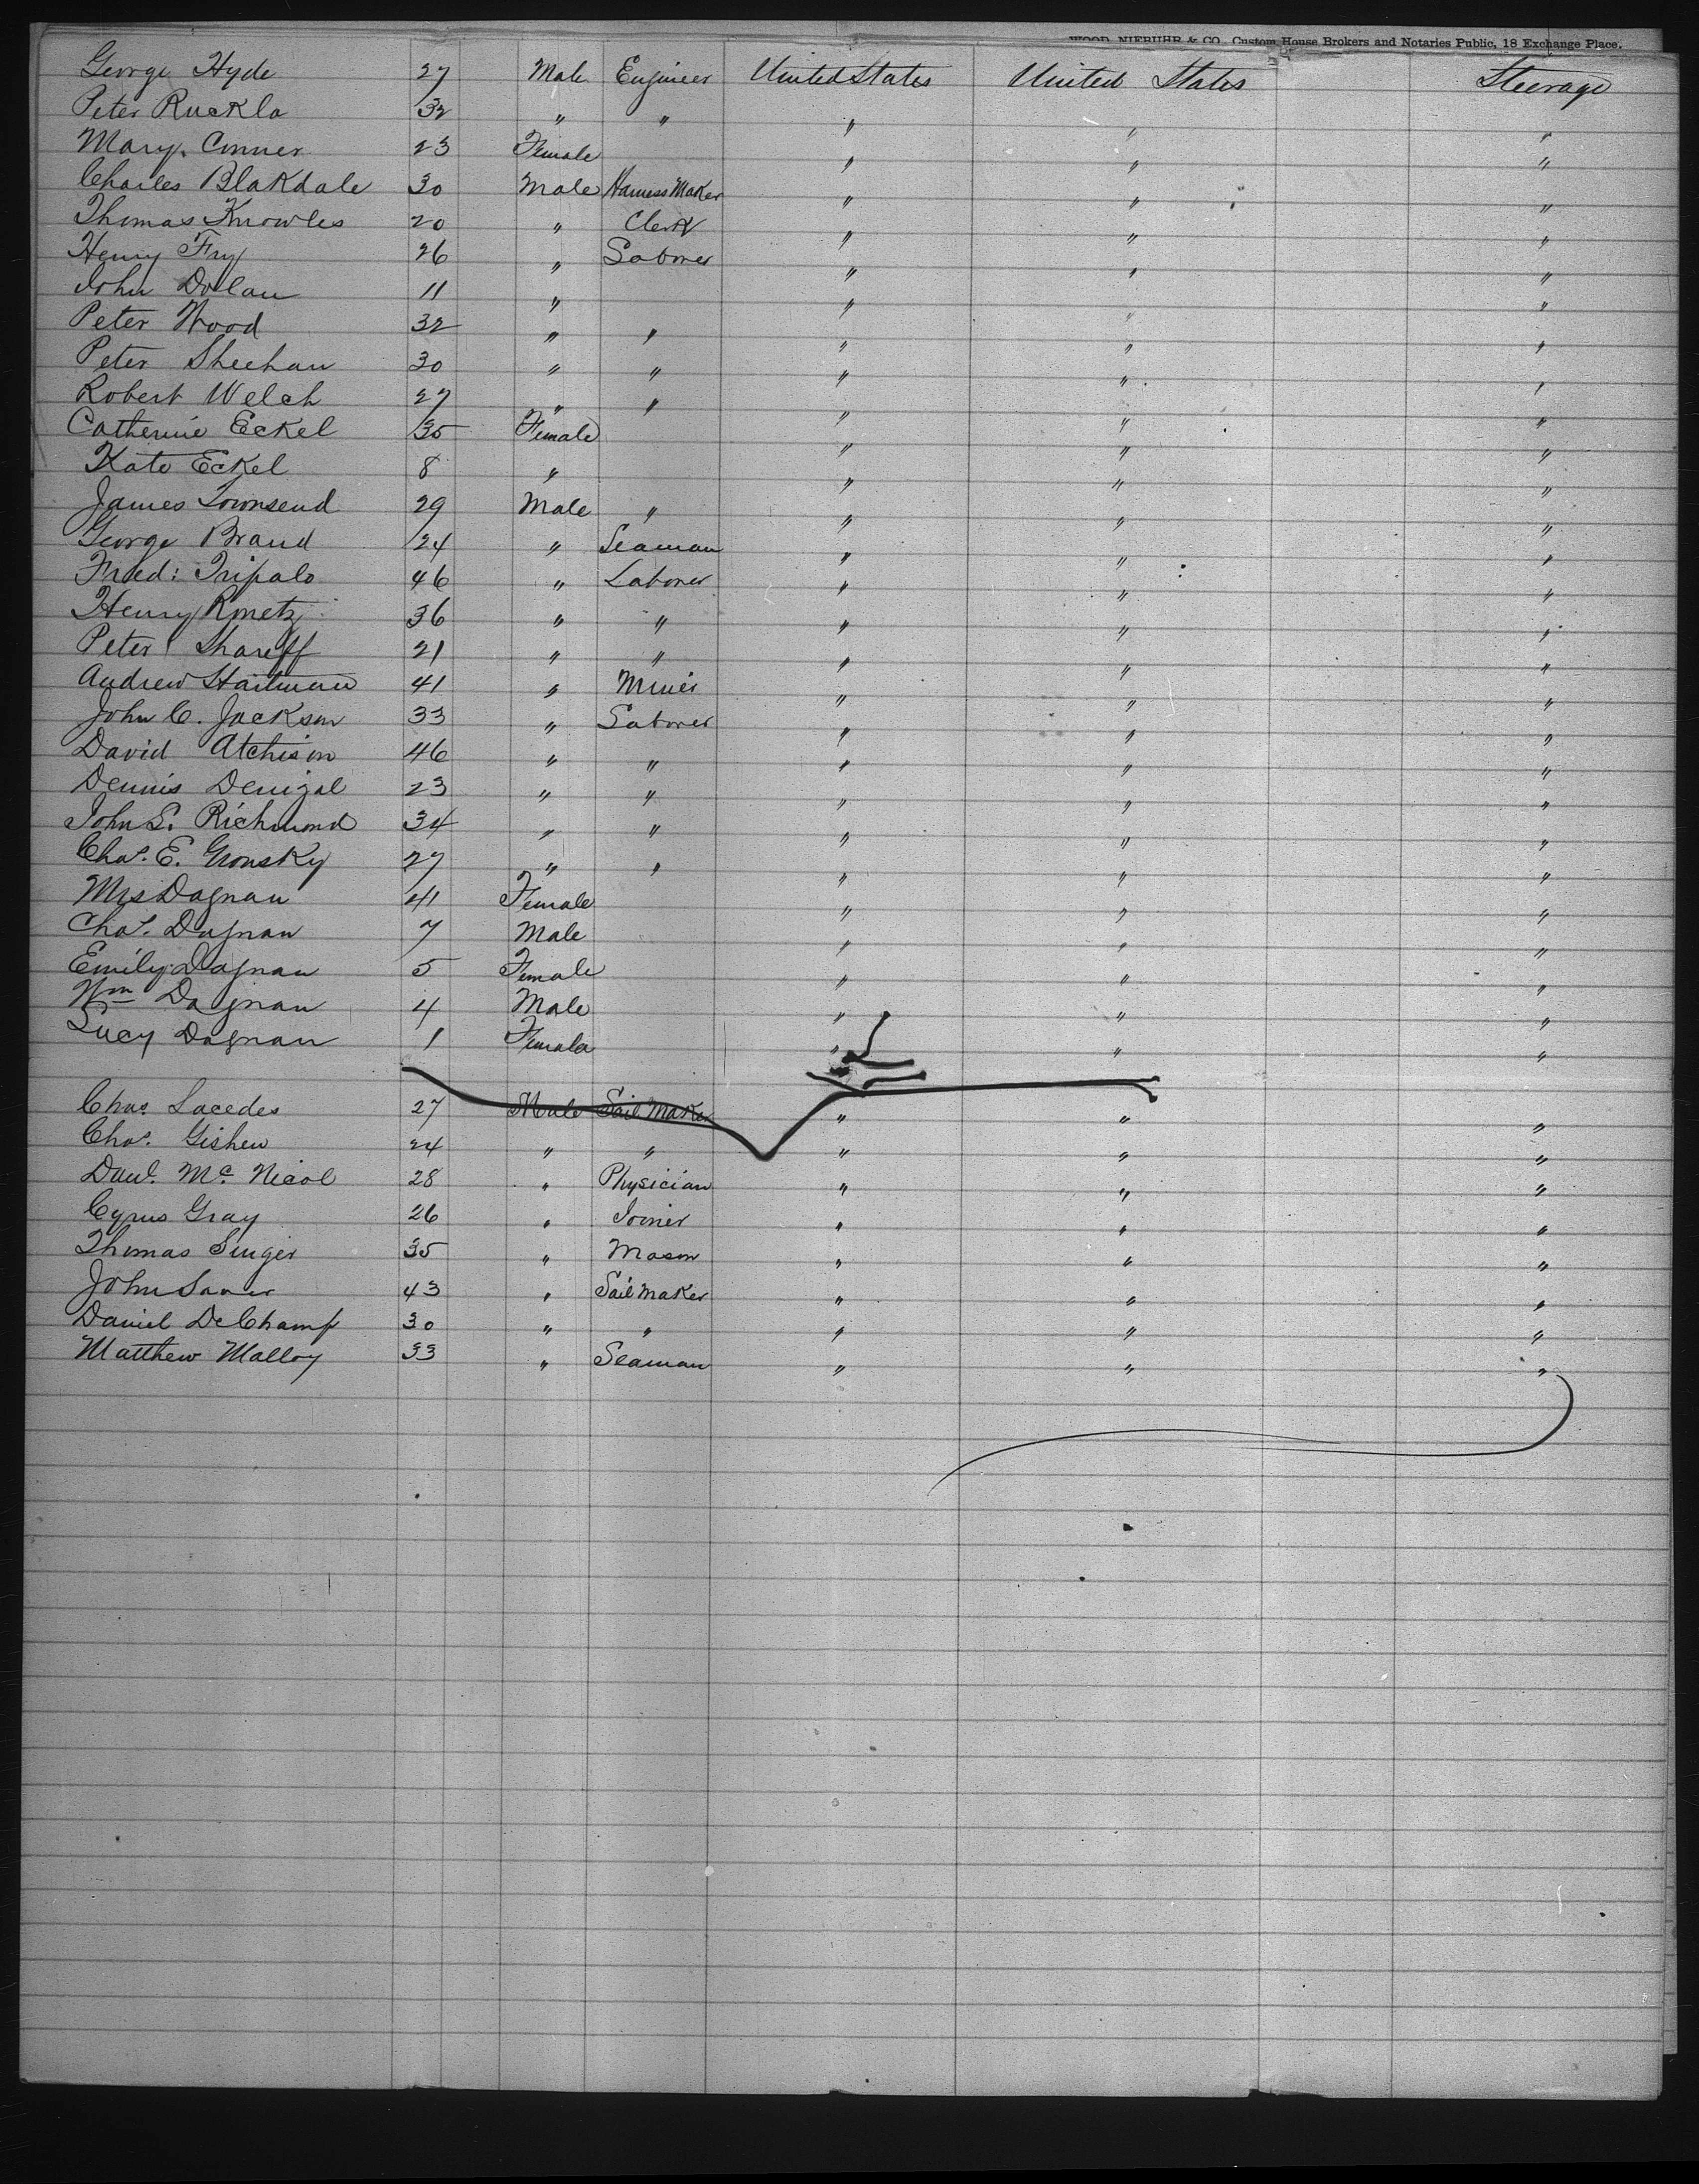 WOOD, NIEBUHR & CO., Custom House Brokers and Notaries Public, 18 Exchange Place.
George Hyde 27 Male Engineer United States United States Steerage
Peter Ruckla 32 " " " " "
Mary Conner 23 Female " " "
Charles Blakdale 30 Male Harness Maker " " "
Thomas Knowles 20 " Clerk " " "
Henry Fry 26 " Laborer " " "
John Dolan 11 " " " "
Peter Wood 32 " " " " "
Peter Sheehan 30 " " " " "
Robert Welch 27 " " " " "
Catherine Eckel 35 Female " " "
Kate Eckel 8 " " " "
James Townsend 29 Male " " " "
George Brand 24 " Seaman " " "
Fred: Tripalo 46 " Laborer " " "
Henry 36 " " " " "
Peter Shareff 21 " " " " "
Andrew 41 " Miner " " "
John C. Jackson 33 " Laborer " " "
David Atchison 46 " " " " "
Dennis 23 " " " " "
John L. Richmond 34 " " " " "
Chas. E. Gronsky 27 " " " " "
Mrs Dagnan 41 Female " " "
Chas. Dagnan 7 Male " " "
Emily Dagnan 5 Female " " "
Wm Dagnan 4 Male " " "
Lucy Dagnan 1 Female " " "
Chas Lacedes 27 Male Sail Maker " " "
Chas. Gishew 24 " " " " "
Danl. Mc. Nicol 28 " Physician " " "
Cyrus Gray 26 " Joiner " " "
Thomas Singer 35 " Mason " " "
John 43 " Sail Maker " " "
Daniel DeChamp 30 " " " " "
Matthew Malloy 33 " Seaman " " "